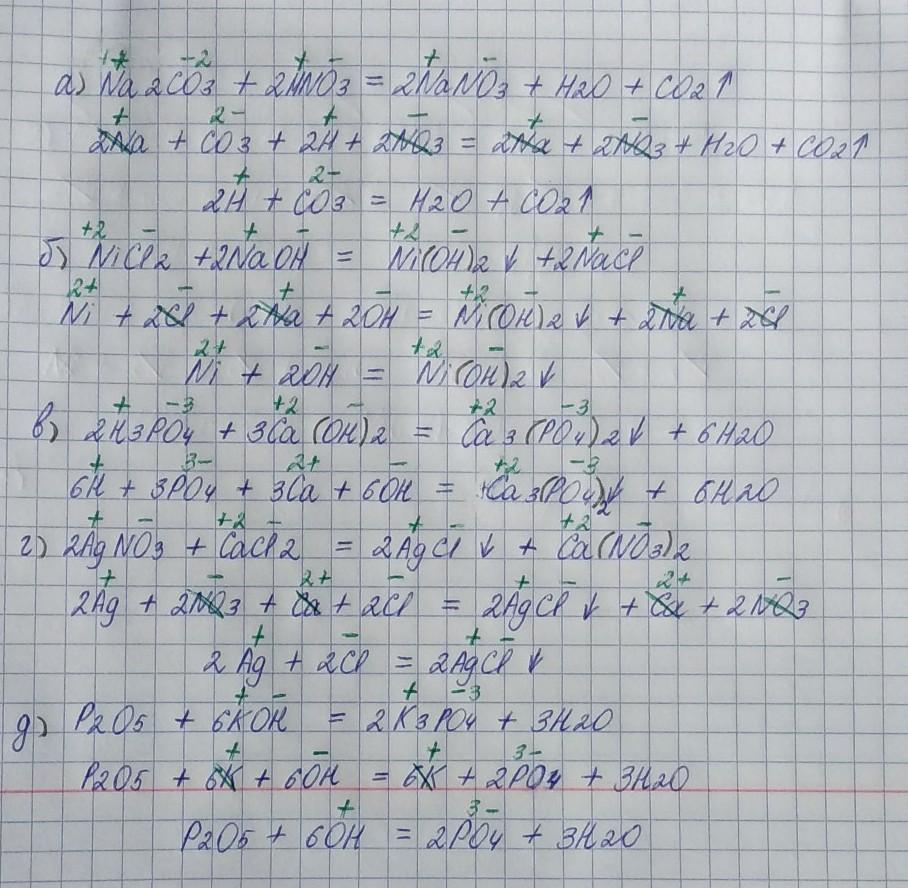 а) Na₂⁺CO₃⁻² + 2H⁺NO₃⁻ = 2Na⁺NO₃⁻ + H2O + CO2↑
2Na⁺ + CO₃²⁻ + 2H⁺ + 2NO₃⁻ = 2Na⁺ + 2NO₃⁻ + H2O + CO2↑
2H⁺ + CO₃²⁻ = H2O + CO2↑
б) Ni⁺²Cl⁻2 + 2Na⁺OH⁻ = Ni⁺²(OH)⁻2↓ + 2Na⁺Cl⁻
Ni²⁺ + 2Cl⁻ + 2Na⁺ + 2OH⁻ = Ni⁺²(OH)⁻2↓ + 2Na⁺ + 2Cl⁻
Ni²⁺ + 2OH⁻ = Ni⁺²(OH)⁻2↓
в) 2H₃⁺PO₄⁻³ + 3Ca⁺²(OH)⁻2 = Ca₃⁺²(PO₄)⁻³2↓ + 6H2O
6H⁺ + 3PO₄³⁻ + 3Ca²⁺ + 6OH⁻ = Ca₃⁺²(PO₄)⁻³2↓ + 6H2O
г) 2Ag⁺NO₃⁻ + Ca⁺²Cl⁻2 = 2Ag⁺Cl⁻↓ + Ca⁺²(NO₃)⁻2
2Ag⁺ + 2NO₃⁻ + Ca²⁺ + 2Cl⁻ = 2Ag⁺Cl⁻↓ + Ca²⁺ + 2NO₃⁻
2Ag⁺ + 2Cl⁻ = 2Ag⁺Cl⁻↓
д) P2O5 + 6K⁺OH⁻ = 2K₃⁺PO₄⁻³ + 3H2O
P2O5 + 6K⁺ + 6OH⁻ = 6K⁺ + 2PO₄³⁻ + 3H2O
P2O5 + 6OH⁺ = 2PO₄³⁻ + 3H2O